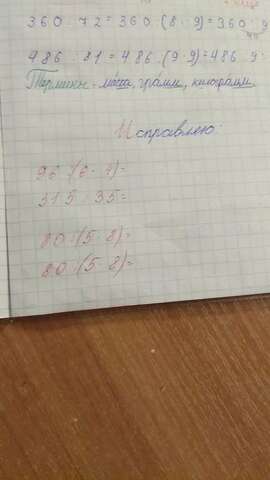 360 : 72 = 360 : (8 · 9) = 360 : 9
486 : 81 = 486 : (9 · 9) = 486 : 9 :
Термины - масса, грамм, килограмм
Исправлею:
96 : (6 · 4) =
315 : 35 =
80 : (5 · 8) =
80 : (5 · 8) =